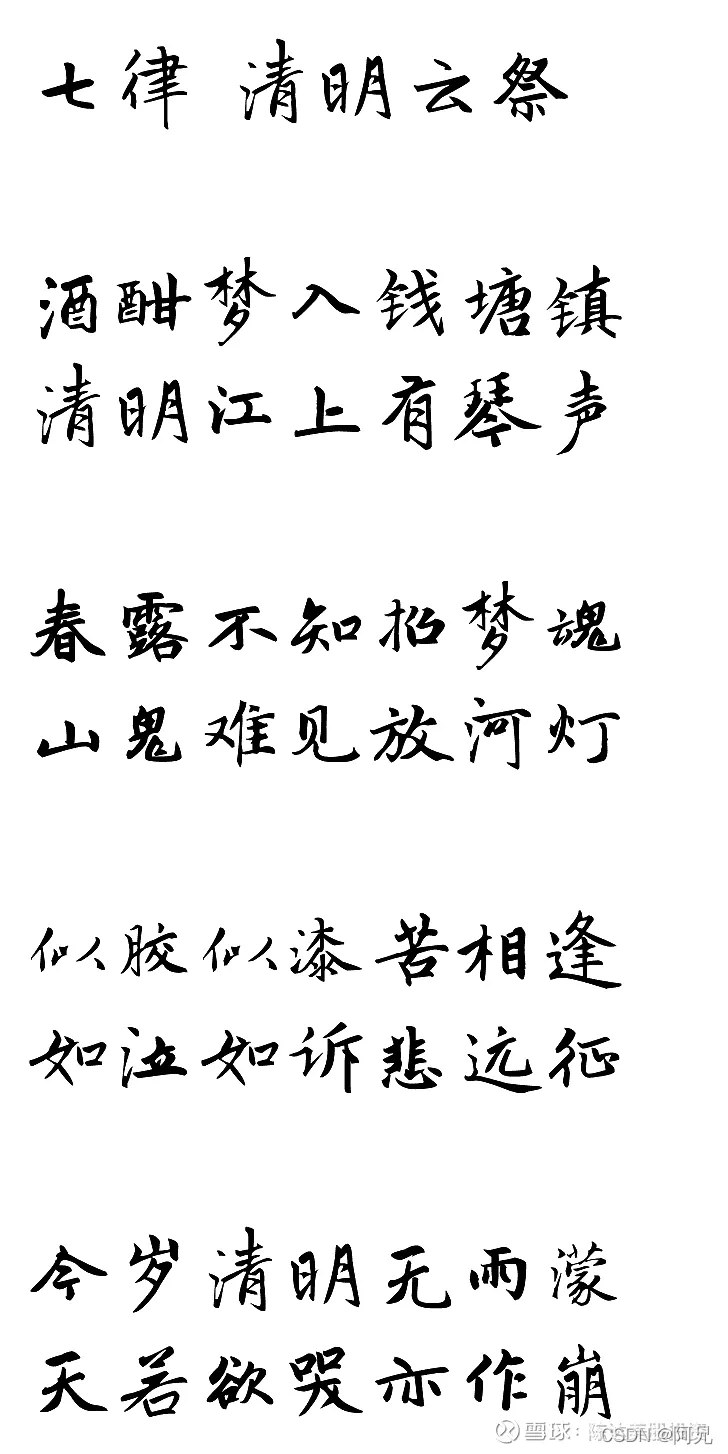 七律 清明云祭
酒酣梦入钱塘镇
清明江上有琴声
春露不知招梦魂
山鬼难见放河灯
似人胶似人漆苦相逢
如泣如诉悲远征
今岁清明无雨濛
天若欲哭亦作崩
雪球:
CSDN @阿兄